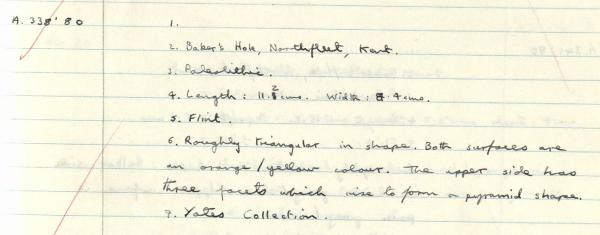 A. 338'80 1.
2. Baker's Hole, Northfleet, Kent.
3. Paleolithic.
4. Length : 11.2 cms. Width : 8.4 cms.
5. Flint.
6. Roughly triangular in shape. Both surfaces are
an orange / yellow colour. The upper side has
three facets which rise to form a pyramid shape.
7. Yates Collection.